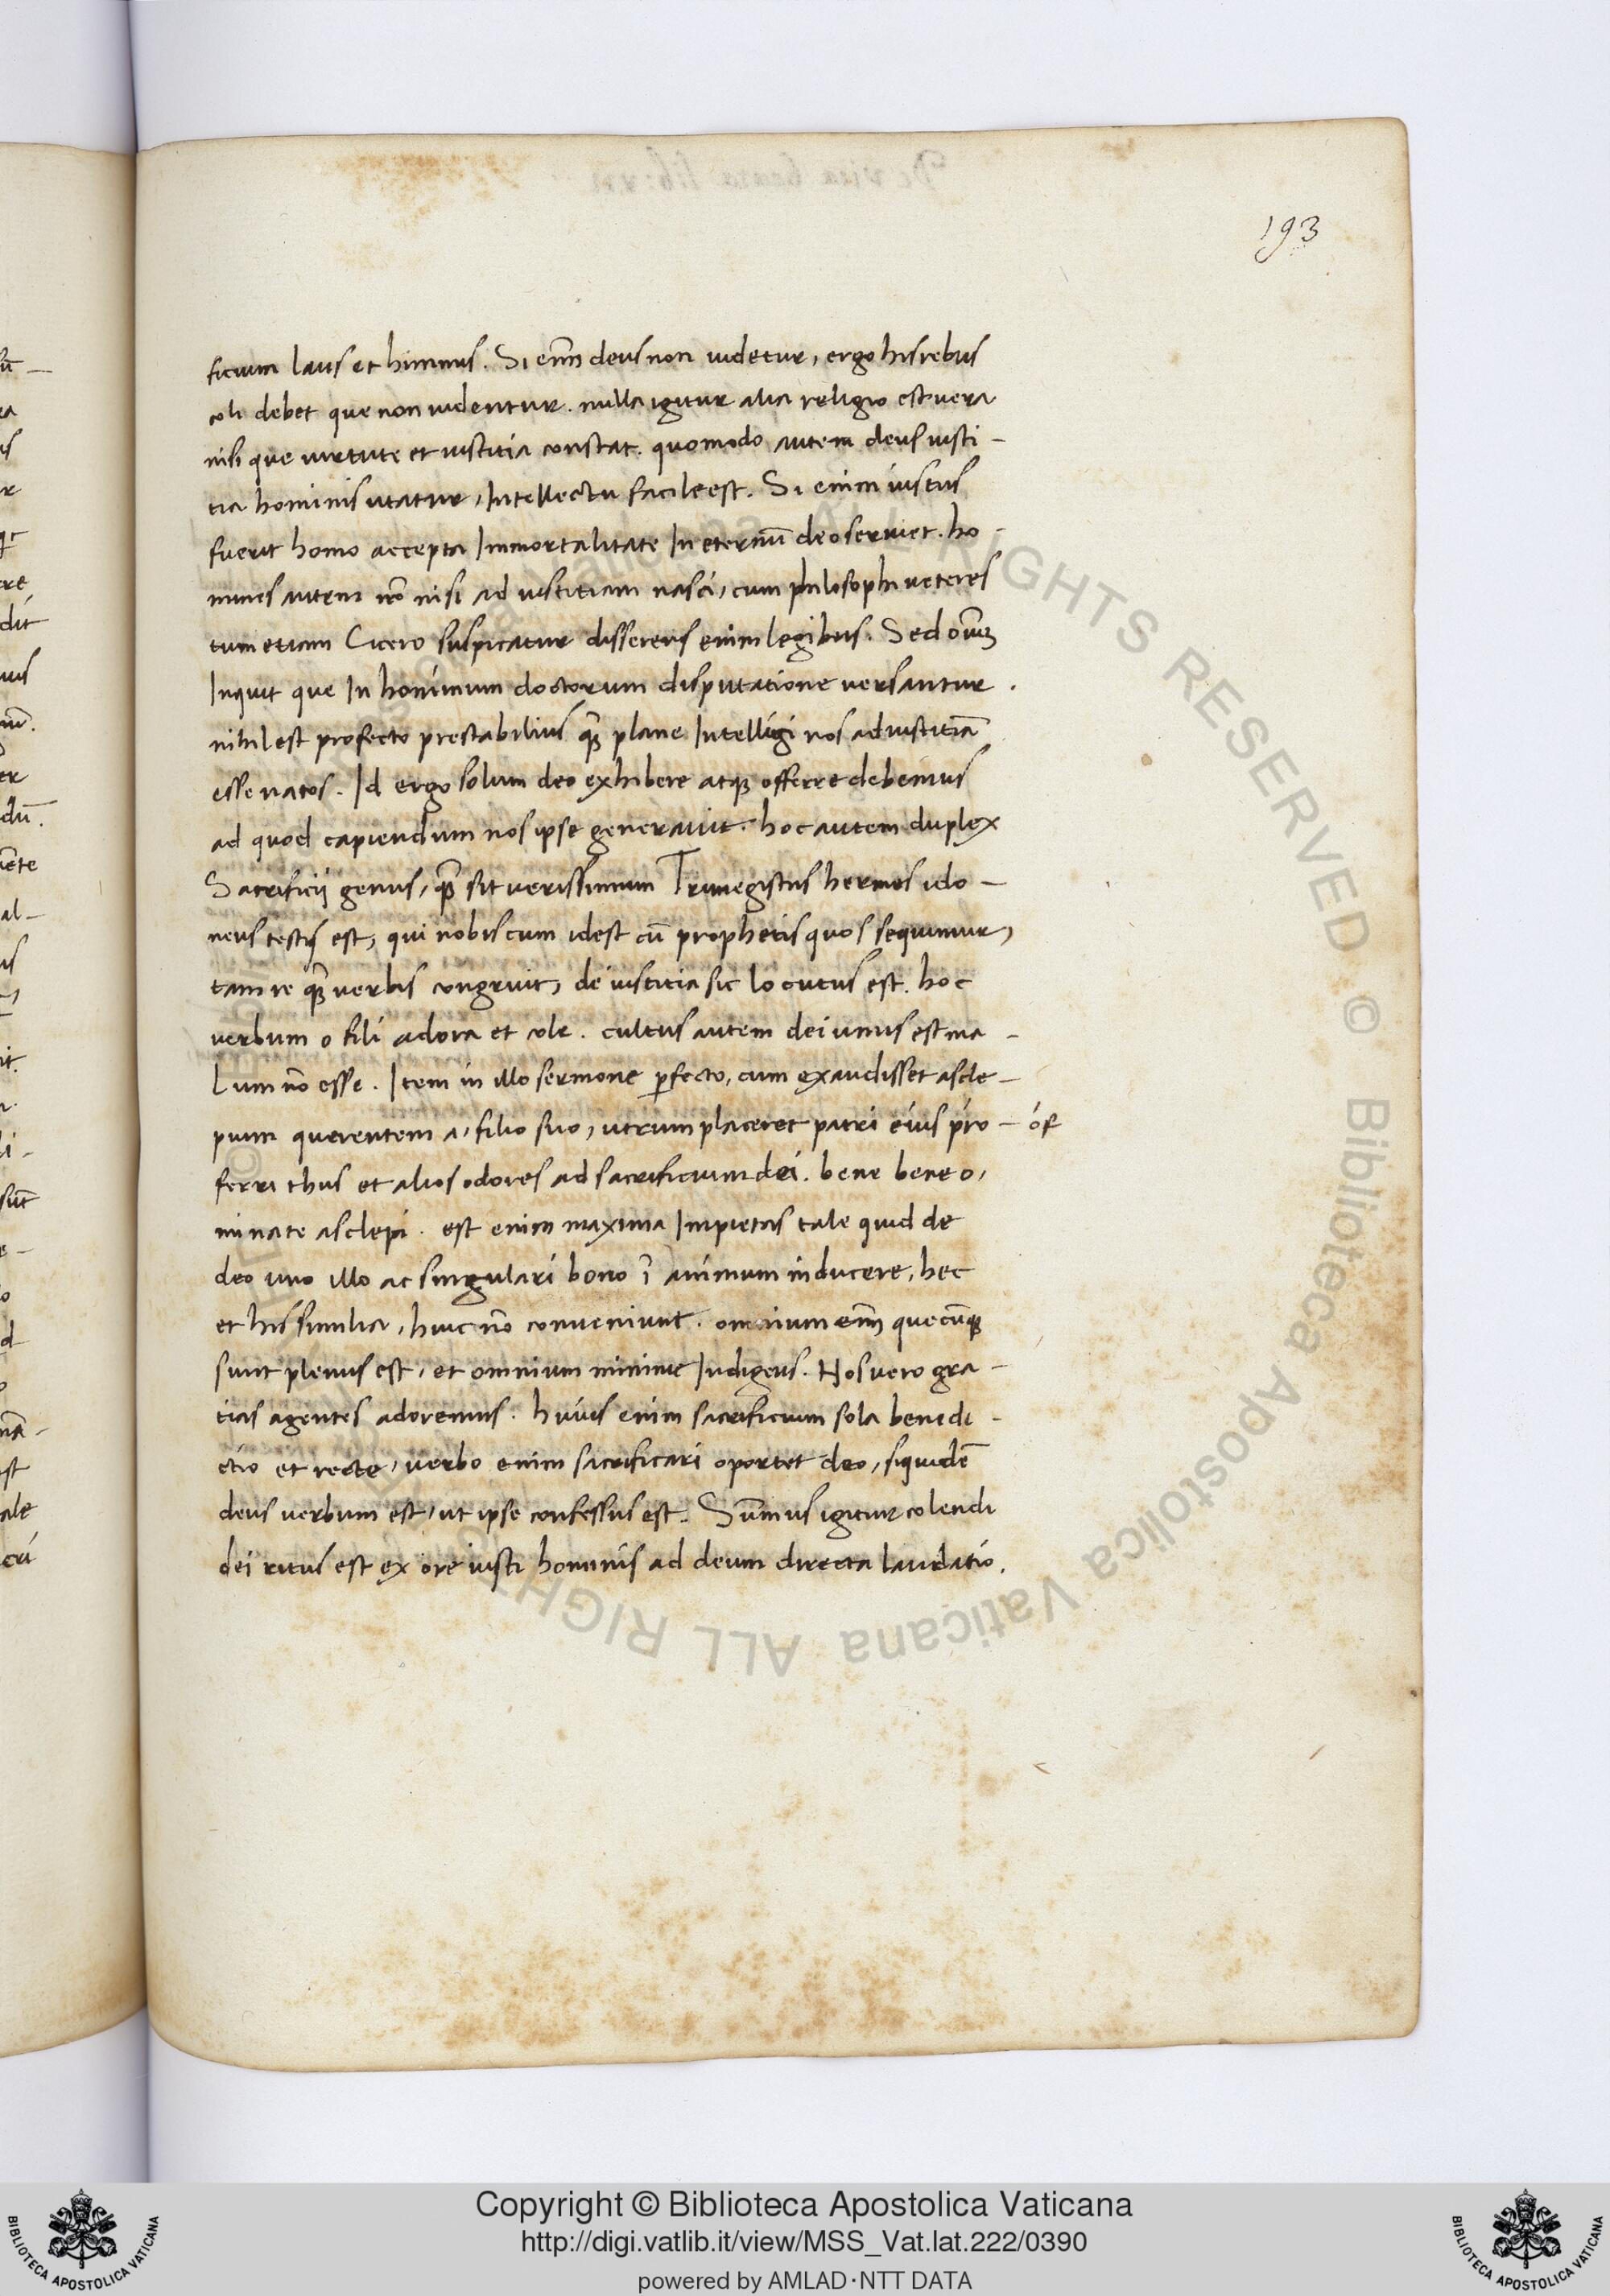 193
ficium laus et himnus. Si enī deus non uidetur, ergo his rebus
coli debet que non uidentur. nulla igitur alia religio est uera
nisi que uirtute et iustitia constat. quomodo autem deus iusti-
tia hominis utatur, Intellectu facile est. Si enim iustus
fuerit homo accepta Immortalitate In eternū deo seruiet. ho-
mines autem nō nisi ad iustitiam nasci, cum philosophi ueteres
tum etiam Cicero suspicatur disserens enim legibus. Sed oīuȝ
Inquit que In hominum doctorum disputatione uersantur.
nihil est profecto prestabilius qȝ̄ plane Intelligi nos ad iustitiā
esse natos. Id ergo solum deo exhibere atqȝ offerre debemus
ad quod capiendum nos ipse generauit. hoc autem duplex
Sacrificij genus, qȝ̄ sit uerissimum Trimegistus hermes ido-
neus testis est, qui nobiscum idest cū prophetis quos sequimur,
tam re qȝ̄ uerbis congruit, de iustitia sic locutus est. hoc
uerbum o fili adora et cole. cultus autem dei unus est ma-
lum nō esse. Item in illo sermone ꝑfecto, cum exaudisset ascle-
pium querentem a, filio suo, utrum placeret patri eius pro- of
ferri thus et alios odores ad sacrificium dei. bene bene o,
minate asclepi. est enim maxima Impietas tale quid de
deo uno illo ac singulari bono ī animum inducere, hec
et his similia, huic nō conueniunt. omnium enī quecūqȝ
sunt plenus est, et omnium minime Indigens. Nos uero gra-
tias agentes adoremus. huius enim sacrificium sola benedi-
ctio et recte, uerbo enim sacrificari oportet deo, siquidē
deus uerbum est, ut ipse confessus est. Sūmus igitur colendi
dei ritus est ex ore iusti hominis ad deum directa laudatio.
Copyright © Biblioteca Apostolica Vaticana
http://digi.vatlib.it/view/MSS_Vat.lat.222/0390
powered by AMLAD·NTT DATA